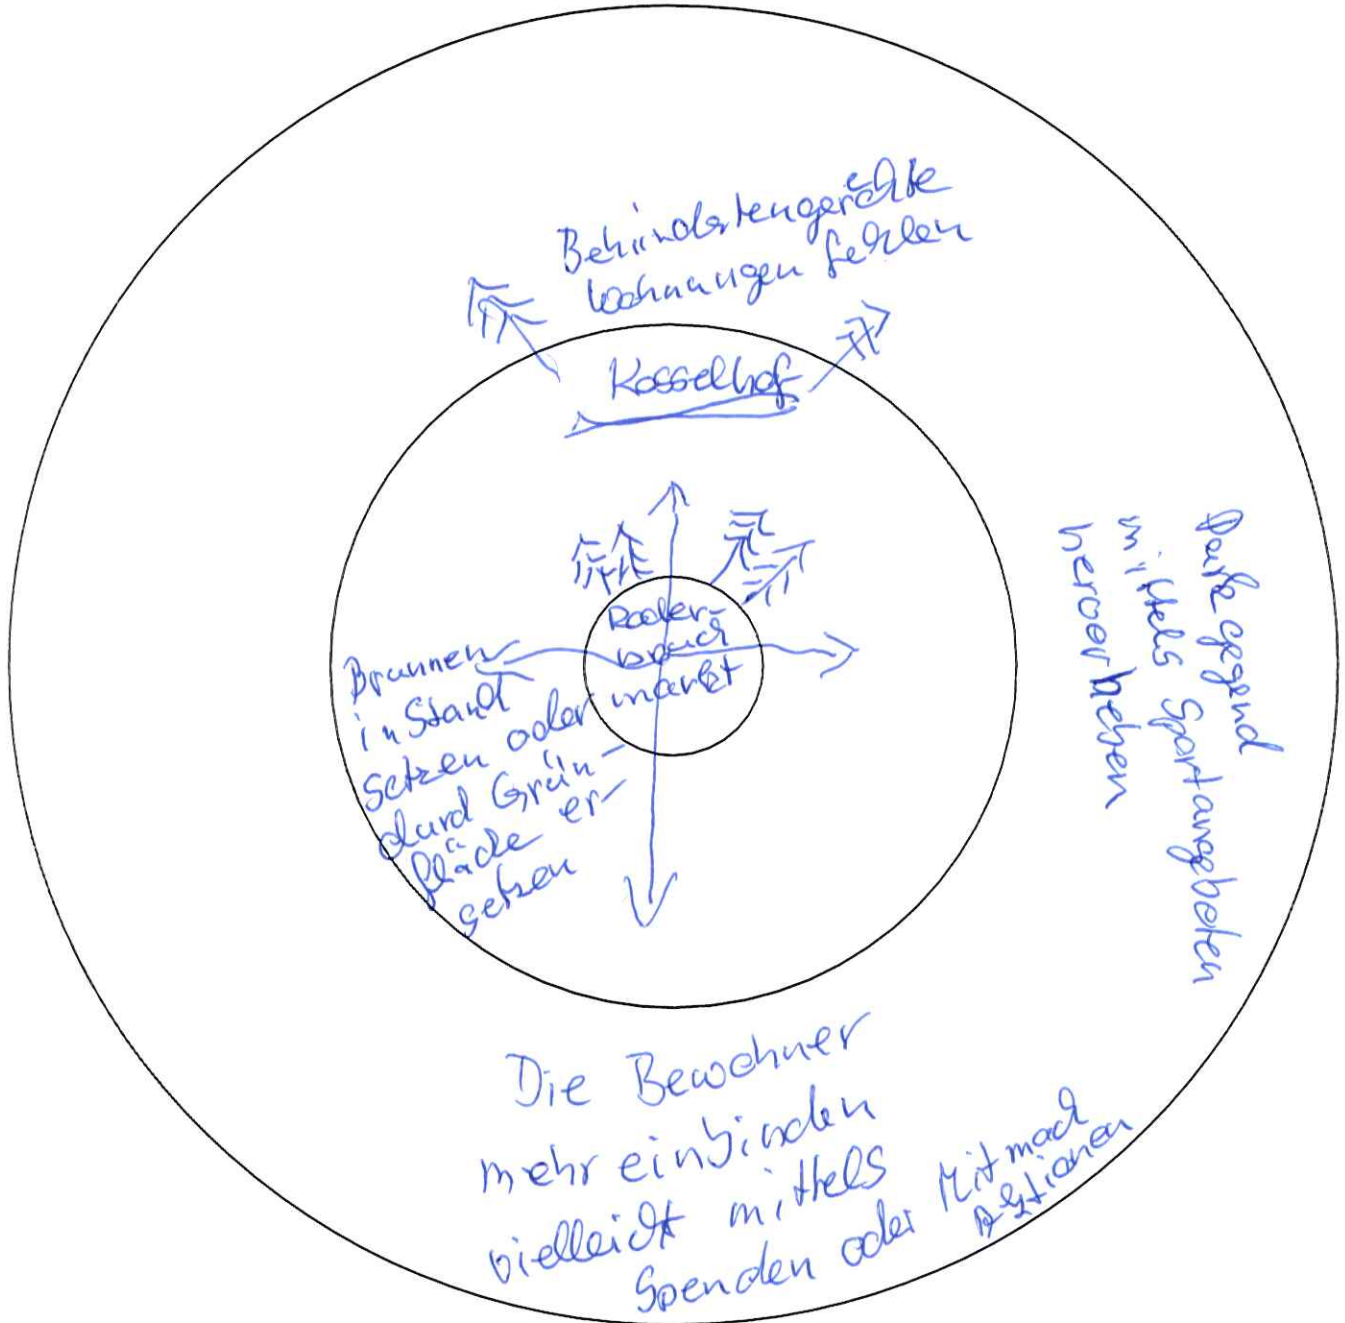 Behindertengerechte
Wohnungen fehlen
Kosselhof
Roder-
bruch
markt
Brunnen
in Stand
setzen oder
durch Grün-
fläche er-
setzen
Parkgegend
mittels Sportangeboten
hervorheben
Die Bewohner
mehr einbinden
vielleicht mittels
Spenden oder Mitmach
Aktionen